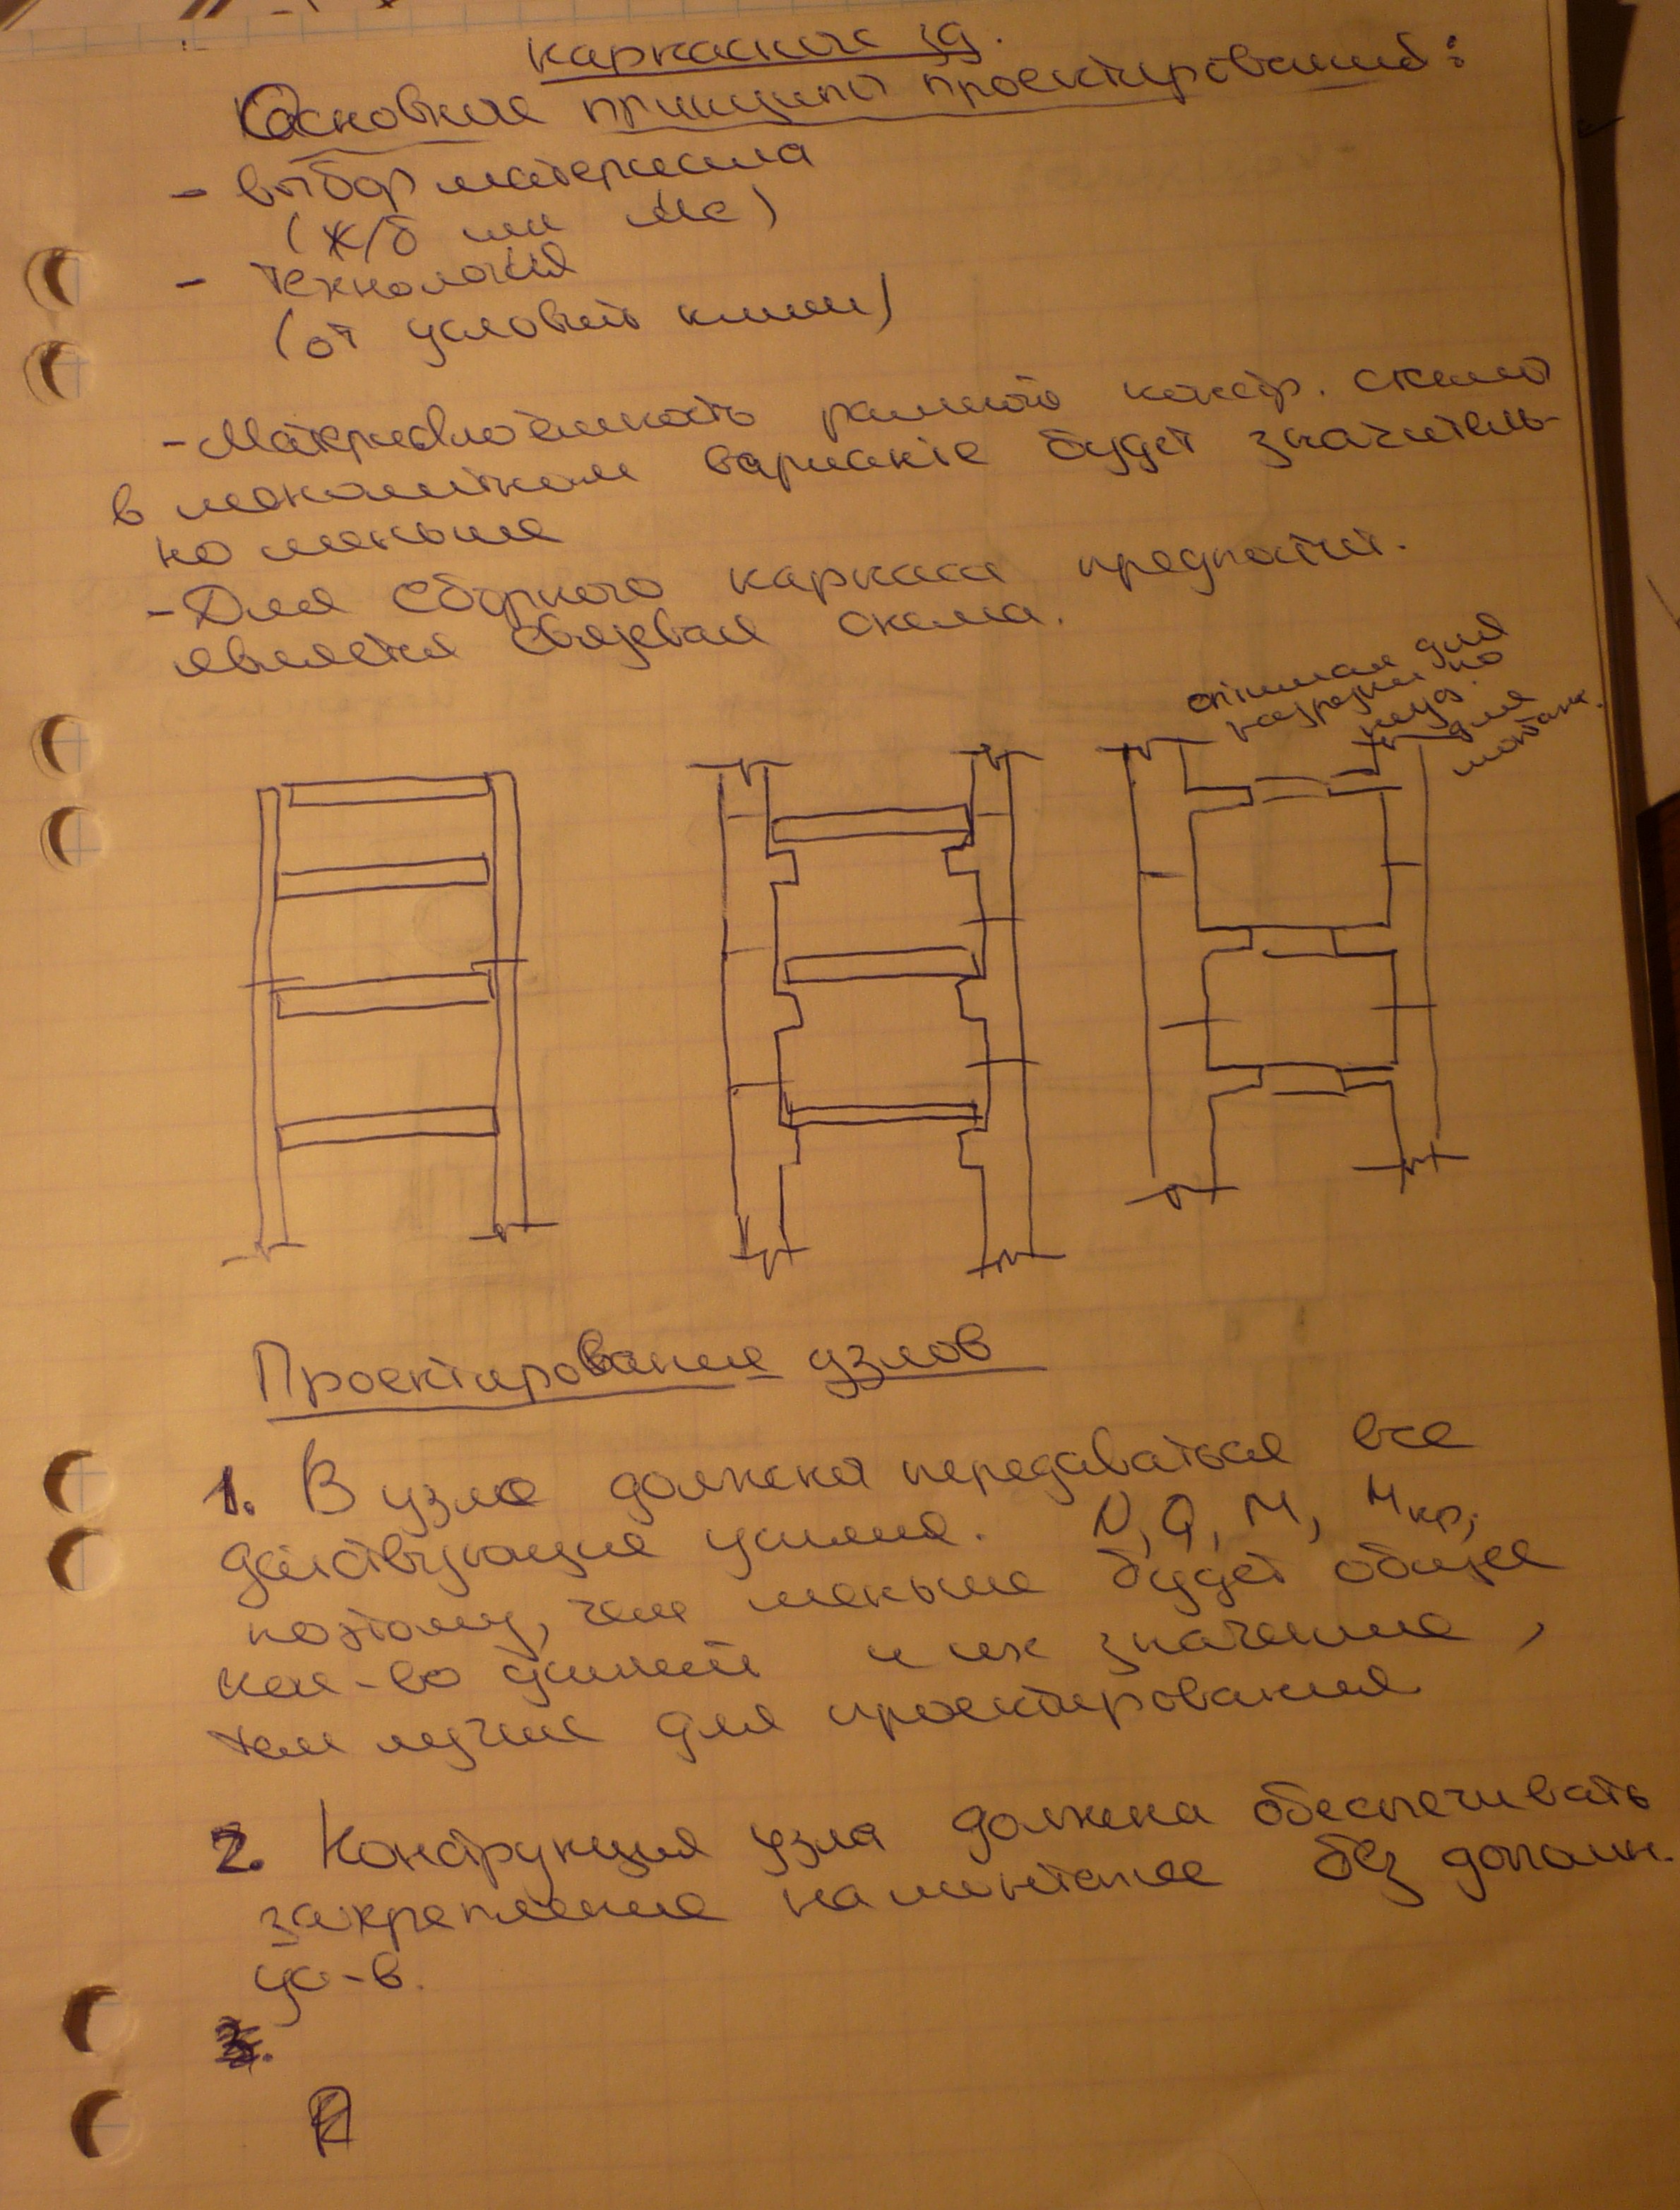 каркасных зд.
Основные принципы проектирования:
- выбор материала
(ж/б или Ме)
- технология
(от условий клим)
- Материалоёмкость рамной констр. схемы
в монолитном варианте будет значитель-
но меньше
- Для сборного каркаса предпочтит.
является связевая схема.
оптимал для
нагрузки но
неуд.
для
монтаж.
Проектирование узлов
1. В узле должны передаваться все
действующие усилия. N, Q, M, Mкр,
поэтому, чем меньше будет общее
кол-во усилий и их значение,
тем лучше для проектирования
2. Конструкция узла должна обеспечивать
закрепление на монтаже без дополн.
ус-в.
3.